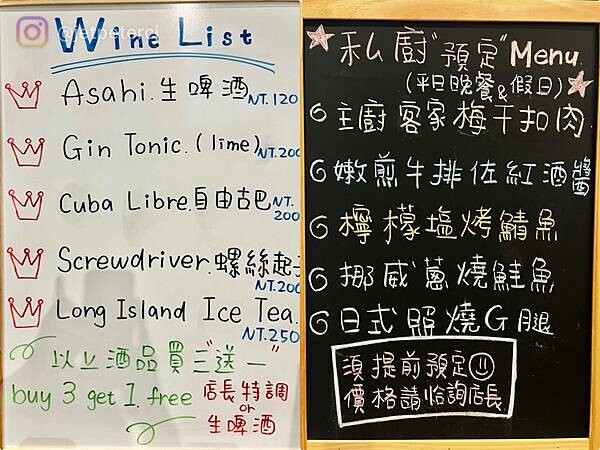 @jetpeterci
Wine List
Asahi.生啤酒 NT.120
Gin Tonic.(lime) NT.200
Cuba Libre.自由古巴 NT.200
Screwdriver.螺絲起子 NT.200
Long Island Ice Tea. NT.250
以上酒品買"三送一"
buy 3 get 1. free
店長特調
or
生啤酒
私廚"預定"Menu.
(平日晚餐&假日)
主廚客家梅干扣肉
嫩煎牛排佐紅酒醬
檸檬塩烤鯖魚
挪威蔥燒鮭魚
日式照燒G腿
須提前預定
價格請恰詢店長